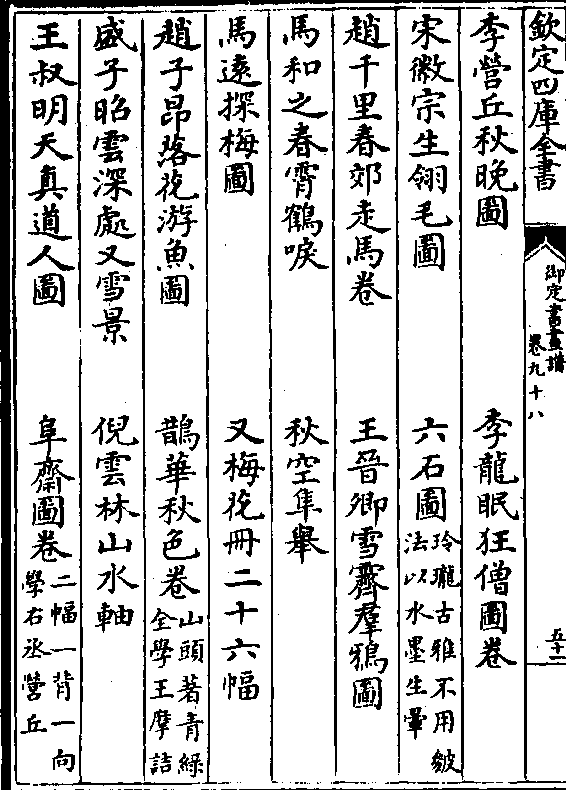 欽定四庫全書
御定書畫譜
卷九十八
五十一
李營丘秋晚圖　李龍眠狂僧圖卷
宋徽宗生翎毛圖　六石圖 玲瓏古雅不用皴法以水墨生暈
趙千里春郊走馬卷　王晉卿雪霽羣鴉圖
馬和之春霄鶴唳　秋空隼舉
馬遠探梅圖　又梅花冊二十六幅
趙子昂落花游魚圖　鵲華秋色卷 山頭著青綠全學王摩詰
盛子昭雲深處又雪景　倪雲林山水軸
王叔明天真道人圖　阜齋圖卷 二幅一背一向學右丞營丘